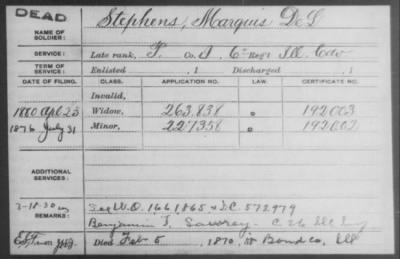 DEAD
NAME OF SOLDIER: Stephens, Marquis De L
SERVICE: Late rank, P. Co. I, 6" Reg't Ill. Cav
TERM OF SERVICE: Enlisted , 1 Discharged , 1
DATE OF FILING. CLASS. APPLICATION NO. LAW. CERTIFICATE NO.
Invalid,
1880 Apl 23 Widow, 263.838 192003
1876 July 31 Minor, 227358 192002
ADDITIONAL SERVICES:
REMARKS: See W.O. 1661865 & I.C. 572979
Benjamin F. C. 26 Ill Inf
Died Feb 5, 1870, in Bond co, Ill